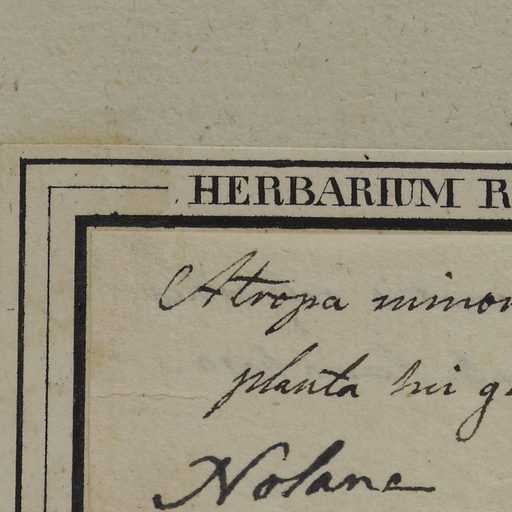 HERBARIUM R
Atropa minor
planta
Nolana